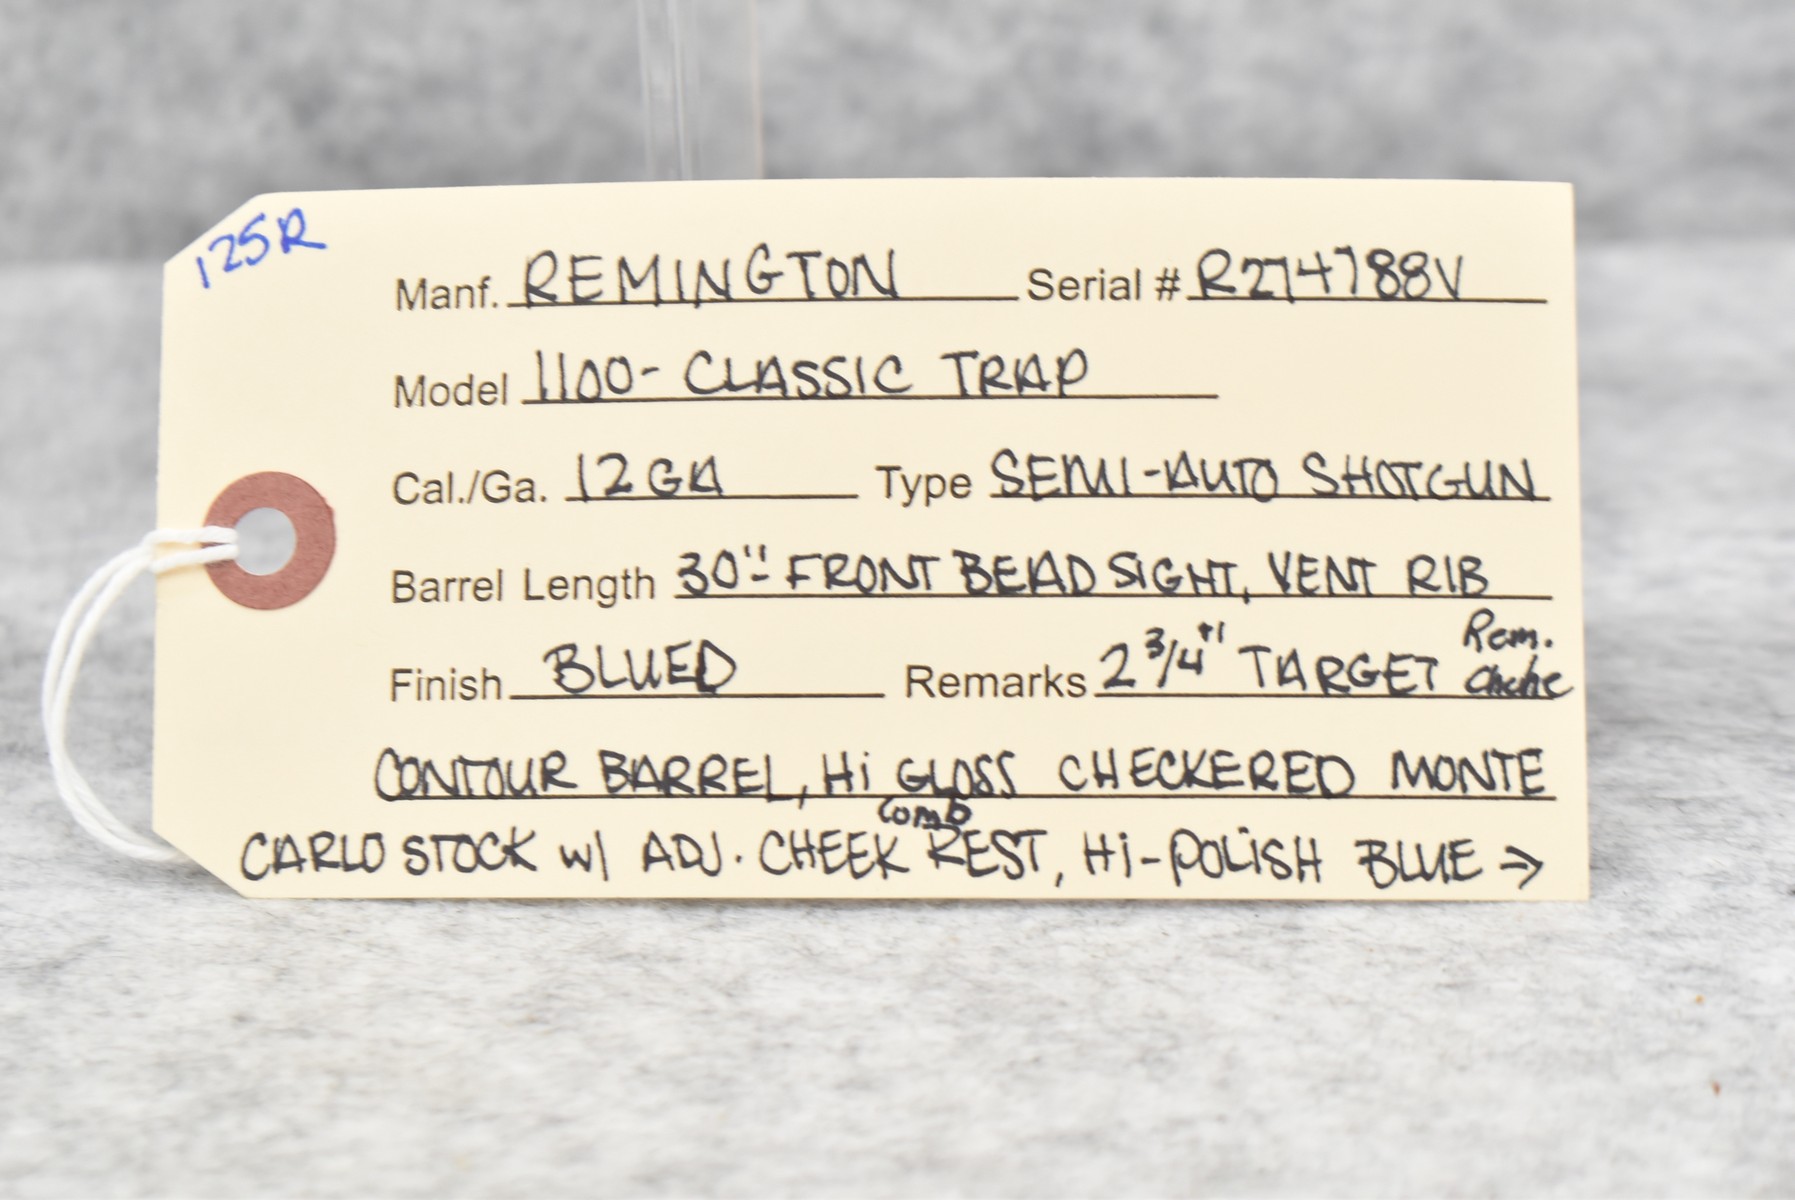 125R
Manf. REMINGTON Serial # R274788V
Model 1100- CLASSIC TRAP
Cal./Ga. 12 GA Type SEMI-AUTO SHOTGUN
Barrel Length 30"- FRONT BEAD SIGHT, VENT RIB
Rem.
Finish BLUED Remarks 2 3/4" TARGET Choke
CONTOUR BARREL, Hi GLOSS CHECKERED MONTE
Comb
CARLO STOCK w/ ADJ. CHEEK REST, Hi-POLiSH BLUE →